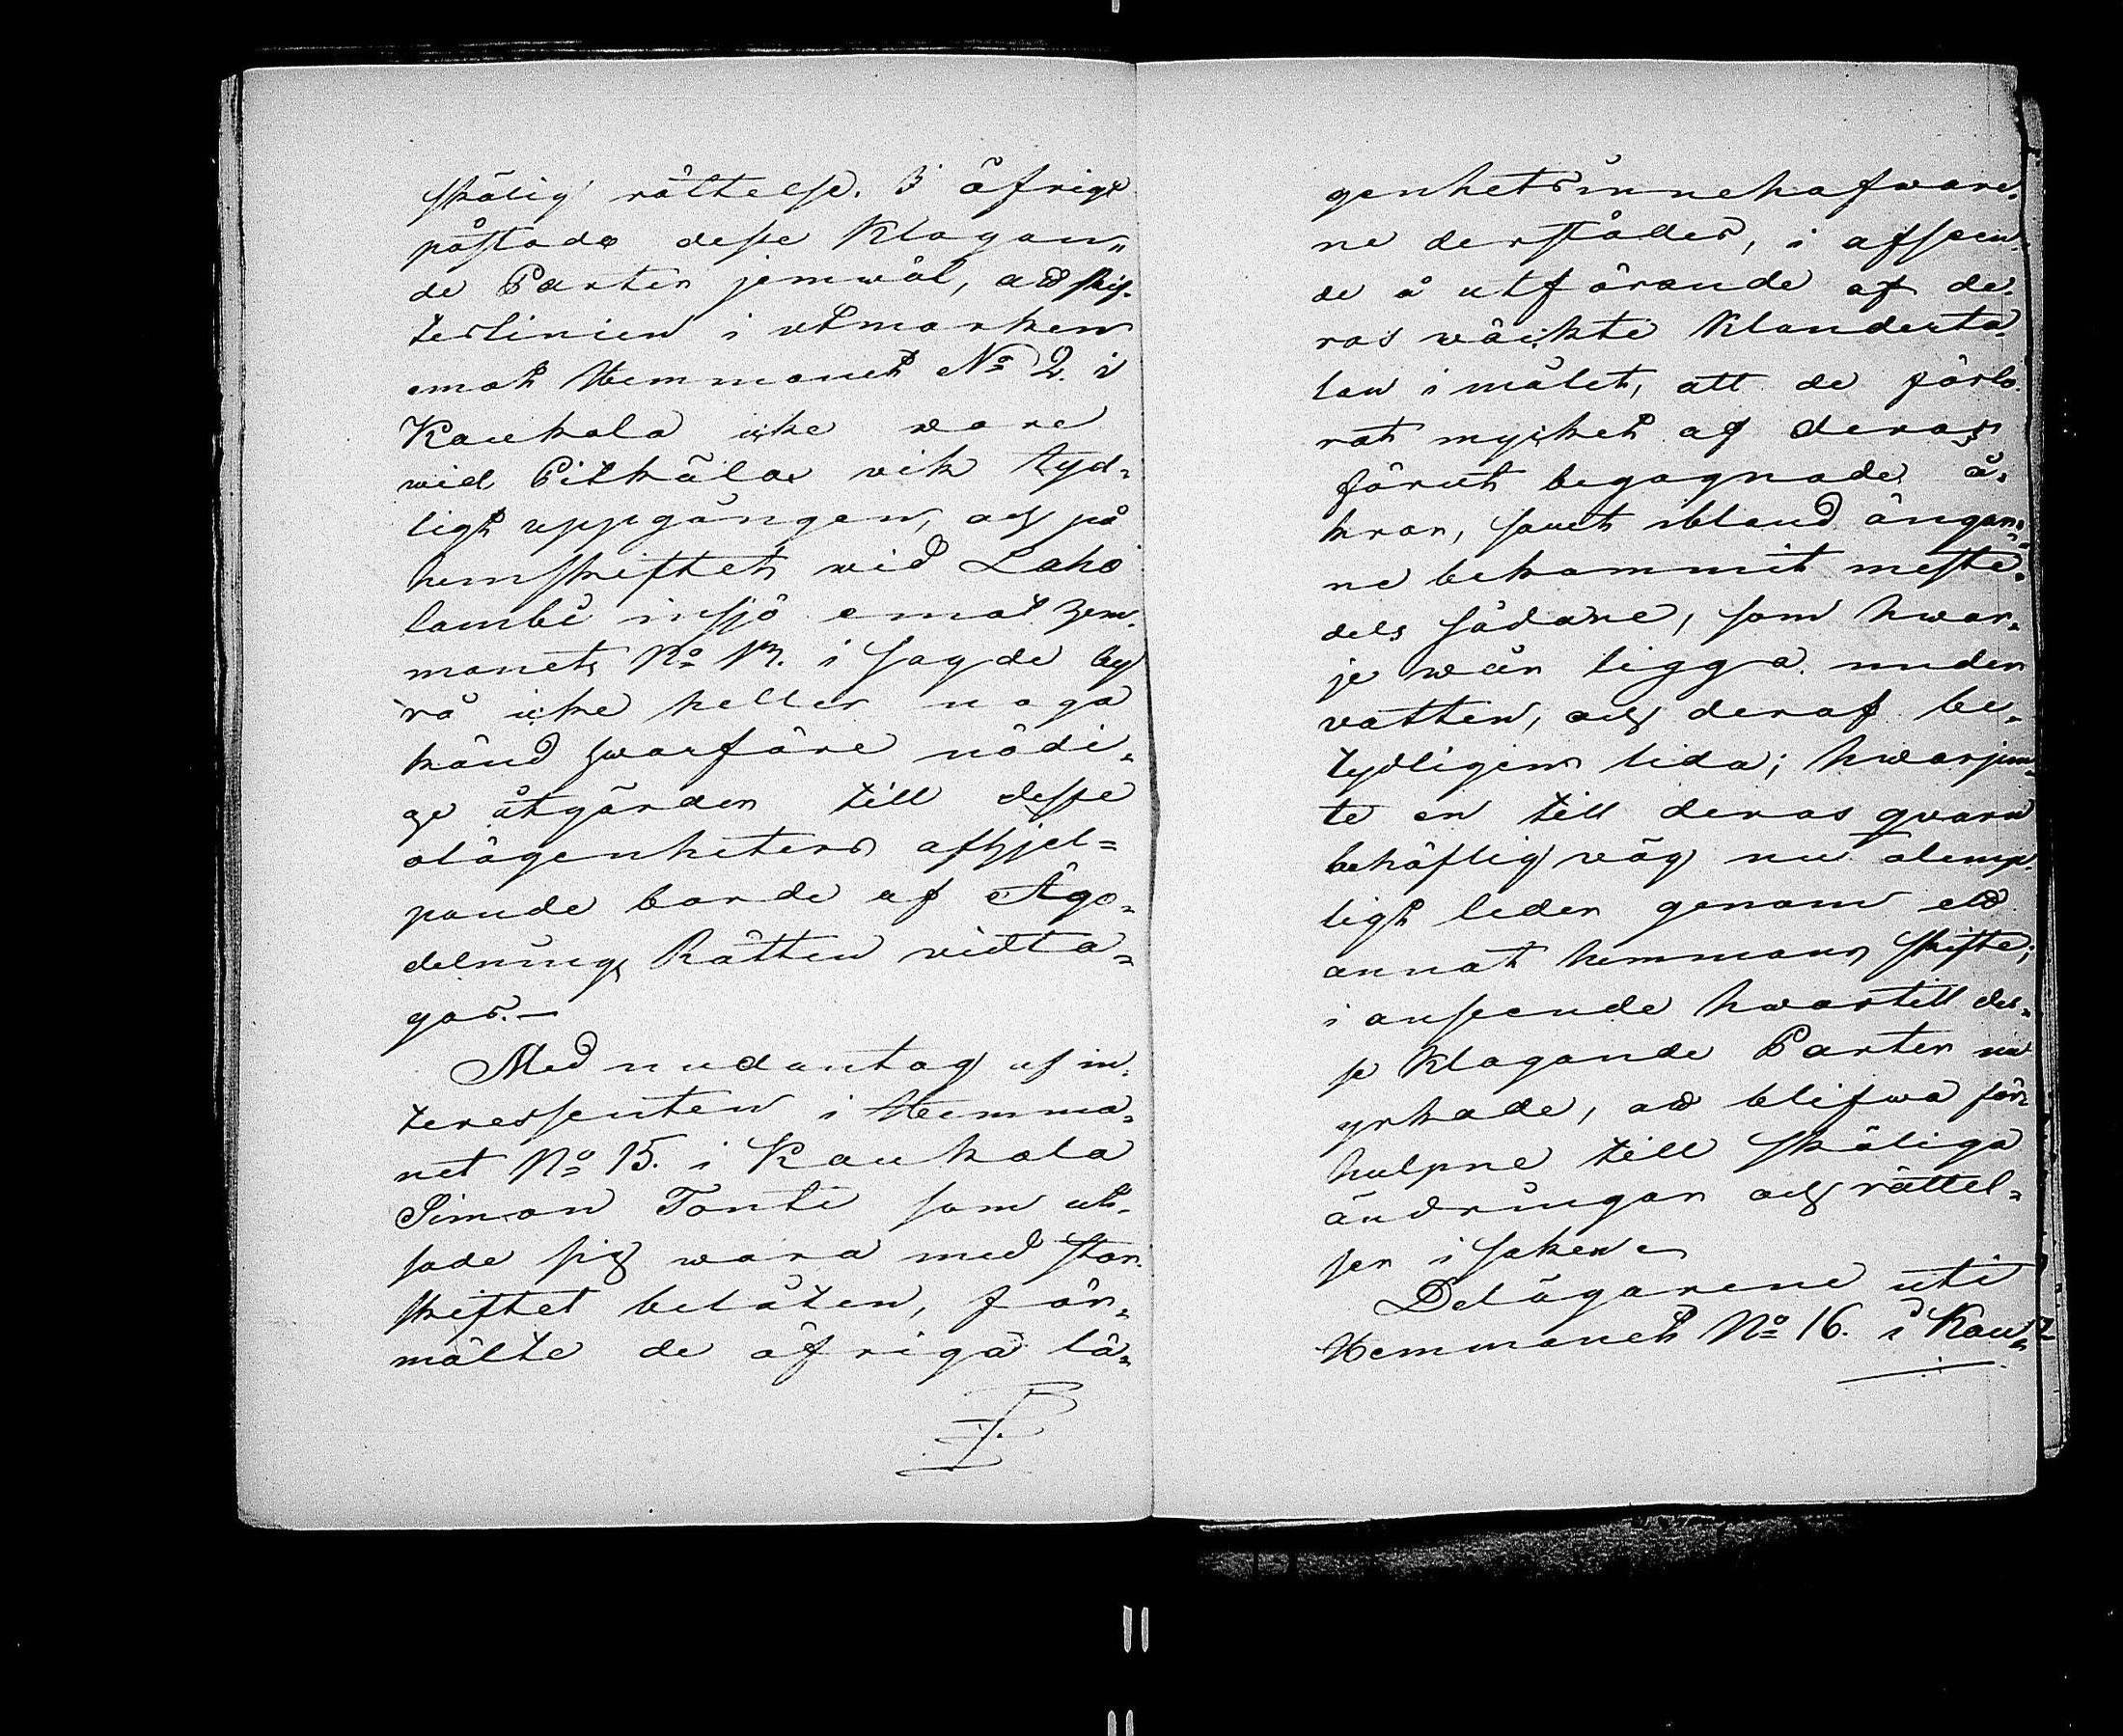 skälig rättelse. I öfrigt
påstodo desse Klagan„
de Parter jemwäl, att skif-
teslinien i utmarken
emot Hemmanet No 2. i
Kaukola icke vore
wid Pitkälax vik tyd-
ligt uppgången, och på
hemskiftet wid Laho
lambi insjö emot Hem-
manet No 17. i sagde by
rå icke heller noga
känd hwarföre nödi-
ge åtgärder till desse
olägenheters afhjel-
pande borde af Ägo-
delnings Rätten vidta-
gas.—
Med undantag af in-
teressenten i Hemma-
net No 15. i Kaukola
Simon Tonti som ut-
sade sig wara med stor
skiftet belåten, för-
mälte de öfriga lä-
genhetsinnehafware-
ne derstädes, i afseen-
de å utförande af de-
ras wäckte Klanderta-
lan i målet, att de förlo-
rat mycket af deras
förut begagnade å-
krar, samt ibland ängar-
ne bekommit meste-
dels sådane, som hwar-
je wår ligga under
vatten, och deraf be-
tydligen lida; hwarjem-
te en till deras qvarn
behöflig väg nu olemp-
ligt leder genom ett
annat hemmans skifte;
i anseende hwartill des-
se Klagande Parter nu
yrkade, att blifwa för-
hulpne till skäliga
ändringar och rättel-
ser i saken
Delägarene uti
Hemmanet No 16. i Kau-